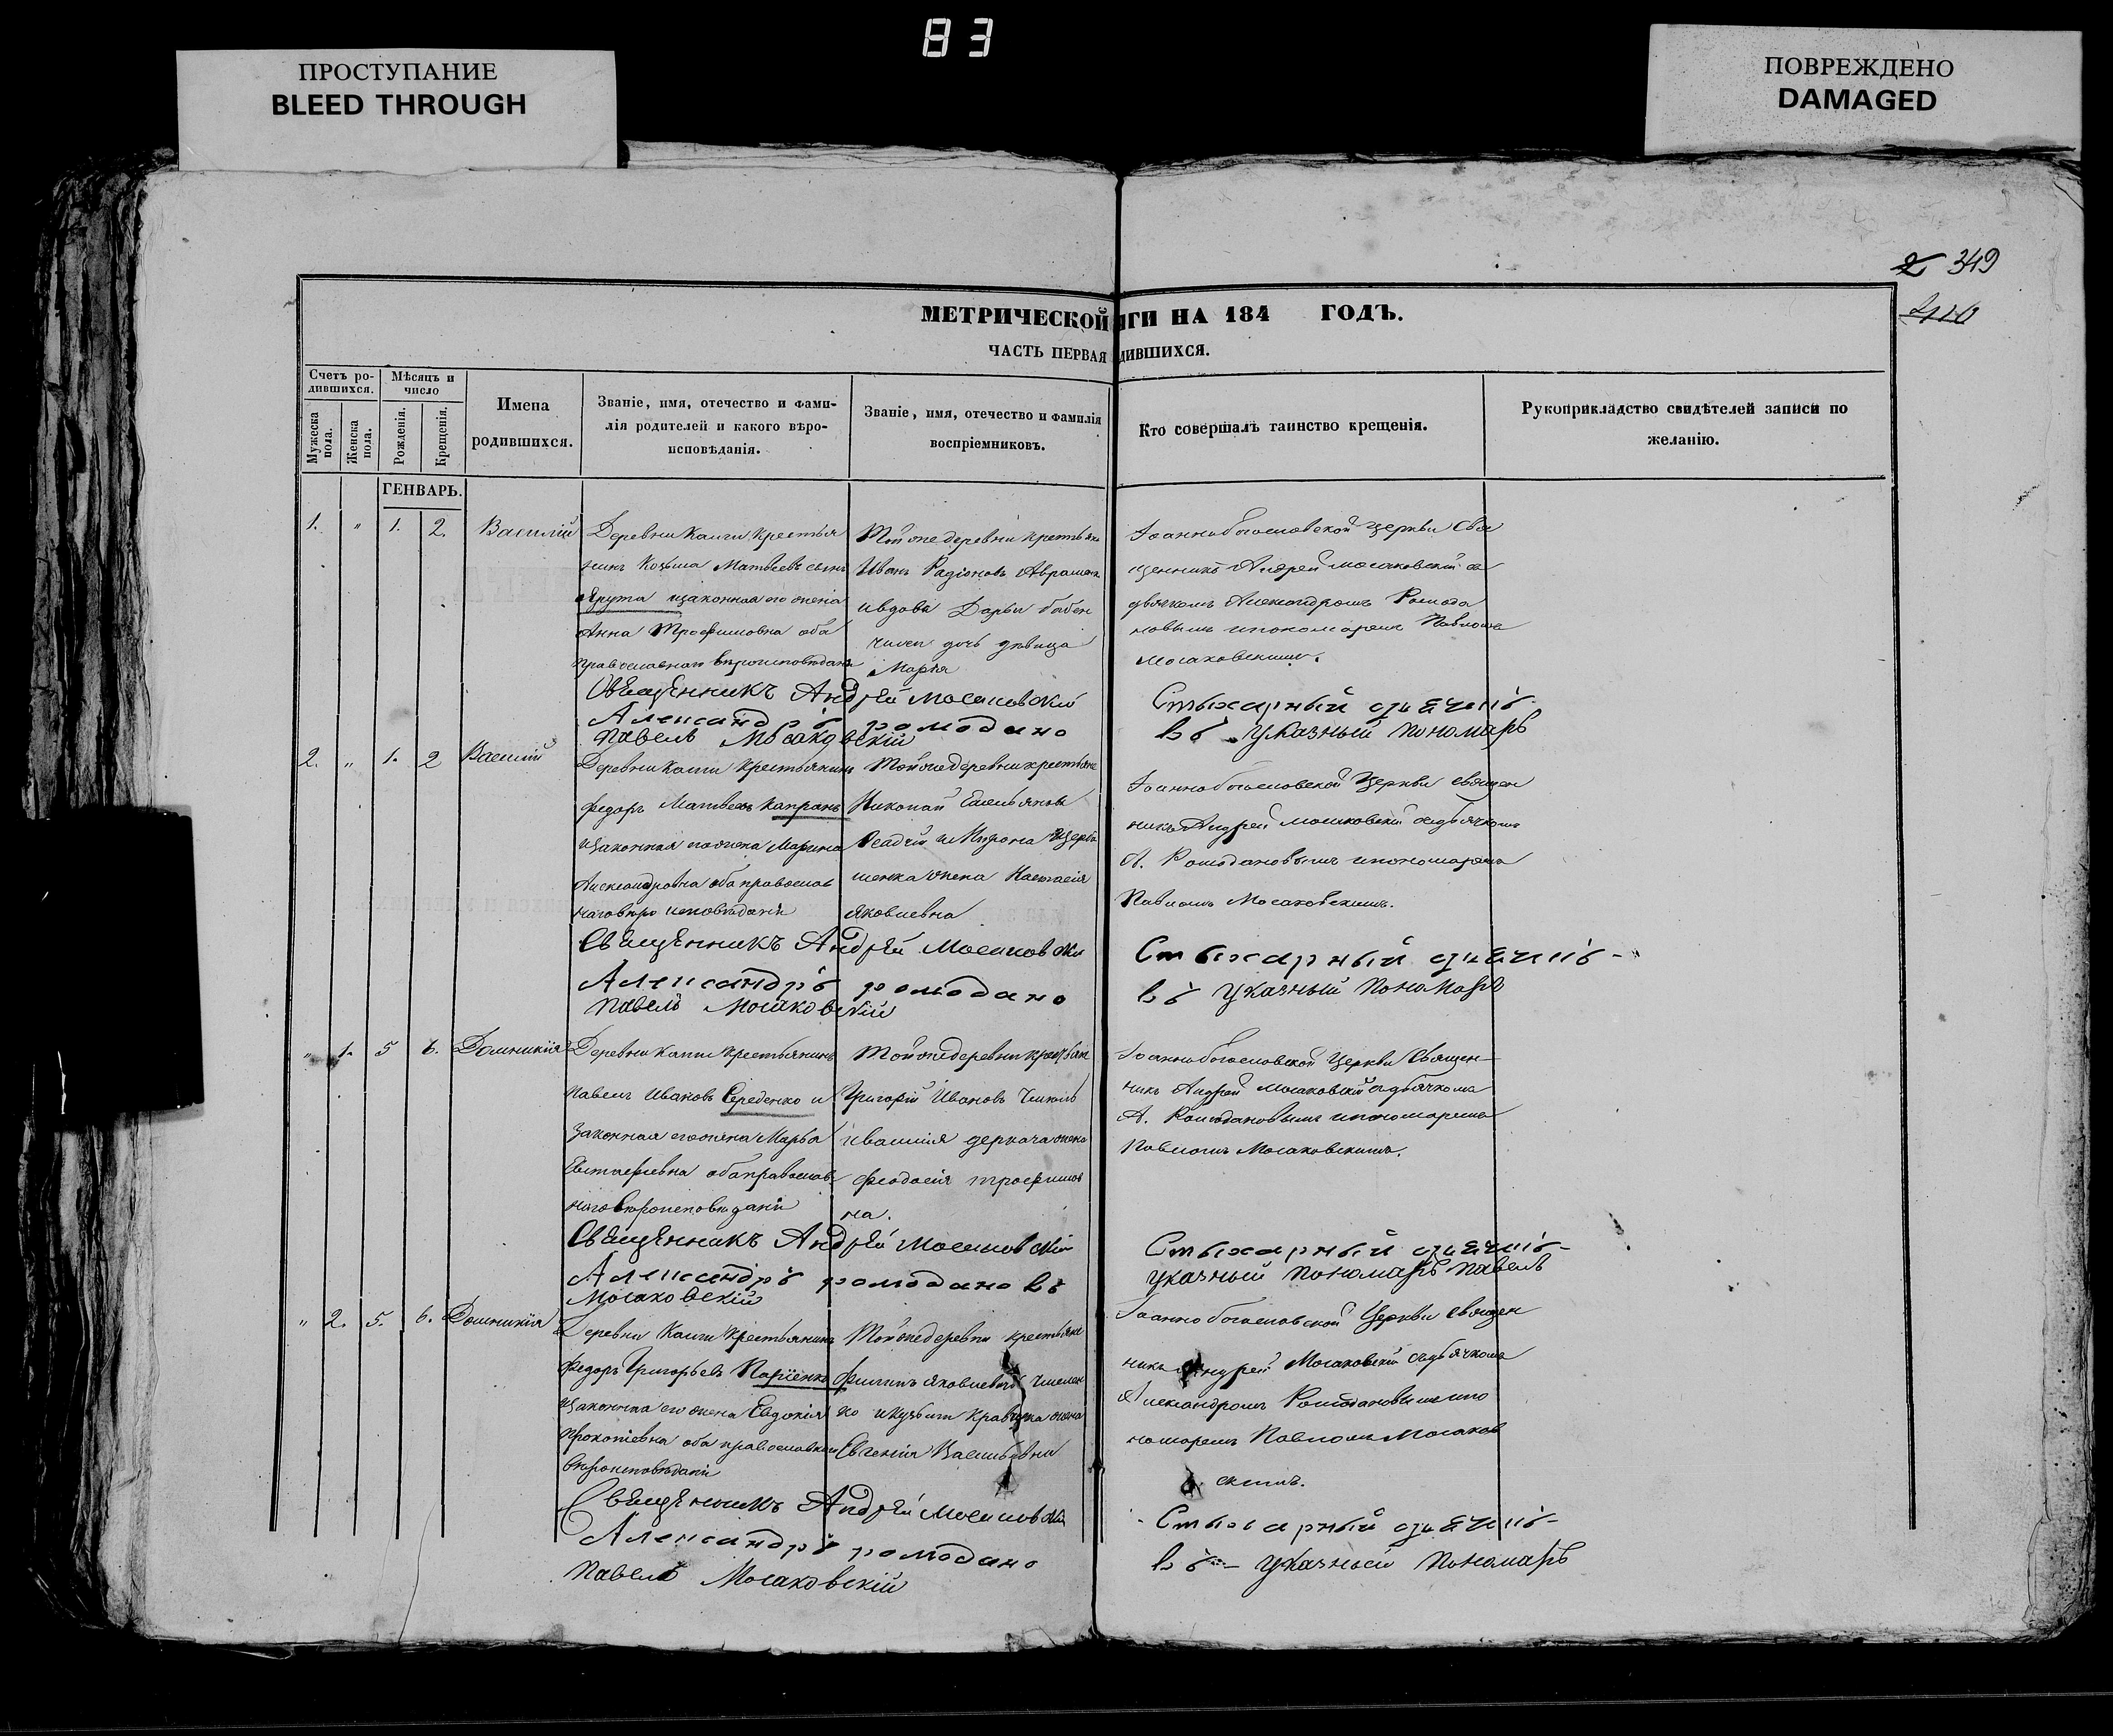 83
ПРОСТУПАНИЕ
BLEED THROUGH
ПОВРЕЖДЕНО
DAMAGED
349
МЕТРИЧЕСКОЙ ИГИ НА 184 ГОДЪ.
ЧАСТЬ ПЕРВАЯ ДИВШИХСЯ.
Счетъ ро-
дившихся.
Мужеска пола.
Женска пола.
Мѣсяцъ и
число
Рожденія.
Крещенія.
Имена
родившихся.
Званіе, имя, отечество и фами-
лія родителей и какого вѣро-
исповѣданія.
Званіе, имя, отечество и фамилія
воспріемниковъ.
Кто совершалъ таинство крещенія.
Рукоприкладство свидѣтелей записи по
желанію.
ГЕНВАРЬ.
1. " 1. 2. Василій
Деревни Камги Крестья
нинъ Козьма Матвѣевъ сынъ
законная его жена
Анна Трофимовна оба
православнаго вѣроисповѣданія
Той же деревни крестьяне
Иванъ Радіоновъ
дочь дѣвица
Марья
Іоанно богословской церкви Свя
щенникъ Андрей Мосаковскій съ
дьячкомъ Александромъ Ромода
новымъ и пономаремъ Павломъ
Мосаковскимъ.
Священникъ Андрей Мосаковскій
Александръ ромодано
Павелъ Мосаковскій
Стихарный дьячекъ
въ указный пономарь
2. " 1. 2 Василій
Деревни Камги Крестьянинъ
Федоръ Матвеевъ Капранъ
законная его жена Марина
Александровна оба православ
наго вѣроисповѣданія
Той же деревни крестьяне
Николай Емельяновъ
жена Настасія
Яковлевна
Іоанно богословской Церкви священ
никъ Андрей Мосаковскій съ дьячкомъ
А. Ромодановымъ и пономаремъ
Павломъ Мосаковскимъ.
Священникъ Андрей Мосаковскій
Александръ ромодано
Павелъ Мосаковскій
Стихарный дьячекъ
въ указный пономарь
" 1. 5 6. Домникія
Деревни Камги Крестьянинъ
Павелъ Ивановъ Середенко и
законная его жена Марья
Евстафіевна оба православ
наго вѣроисповѣданія
Той же деревни крестьяне
Григорій Ивановъ
деркача жена
Феодосія Трофимов
на.
Іоанно богословской Церкви Священ
никъ Андрей Мосаковскій съ дьячкомъ
А. Ромодановымъ и пономаремъ
Павломъ Мосаковскимъ.
Священникъ Андрей Мосаковскій
Александръ ромодановъ
Мосаковскій
Стихарный дьячекъ
указный пономарь Павелъ
" 2. 5. 6. Домникія
Деревни Камги Крестьянинъ
Федоръ Григорьевъ
законная его жена Евдокія
Прокопіевна оба православнаго
вѣроисповѣданія
Той же деревни крестьяне
Филипъ Яковлевъ
жена
Евгенія Васильевна
Іоанно богословской Церкви священ
никъ Андрей Мосаковскій съ дьячкомъ
Александромъ Ромодановымъ и по
номаремъ Павломъ Мосаков
скимъ.
Священникъ Андрей Мосаковскій
Александръ ромодано
Павелъ Мосаковскій
Стихарный дьячекъ
въ указный пономарь